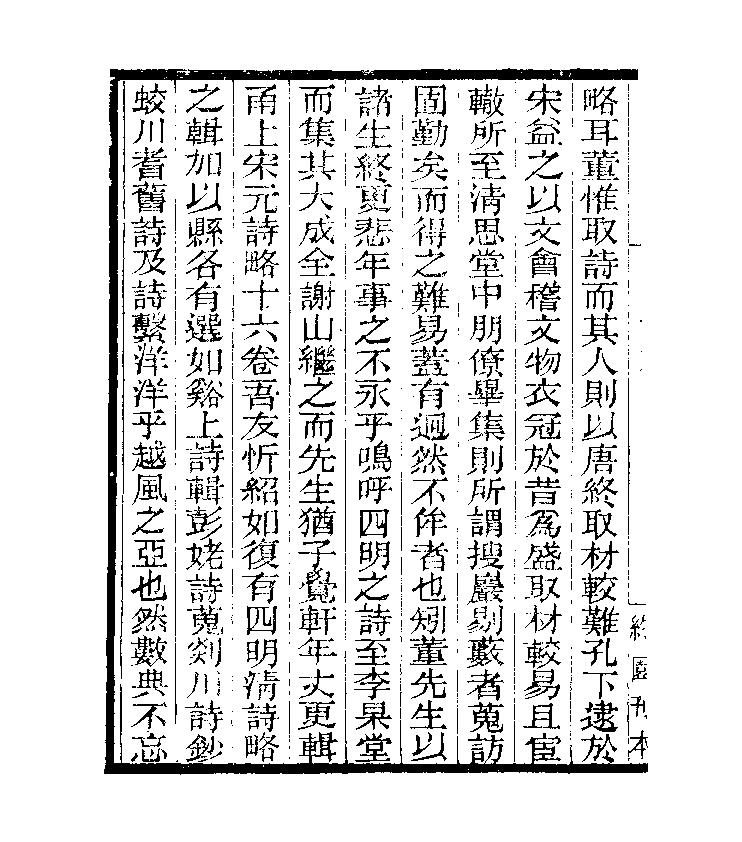 略耳董惟取詩而其人則以唐終取材較難孔下逮於
宋益之以文會稽文物衣冠於昔為盛取材較易且宦
轍所至清思堂中朋僚畢集則所謂搜巖剔藪者蒐訪
固勤矣而得之難易蓋有迥然不侔者也矧董先生以
諸生終更悲年事之不永乎鳴呼四明之詩至李杲堂
而集其大成全謝山繼之而先生猶子覺軒年丈更輯
甬上宋元詩略十六卷吾友忻紹如復有四明淸詩略
之輯加以縣各有選如谿上詩輯彭姥詩蒐剡川詩鈔
蛟川耆舊詩及詩繫洋洋乎越風之亞也然數典不忘
約園刊本